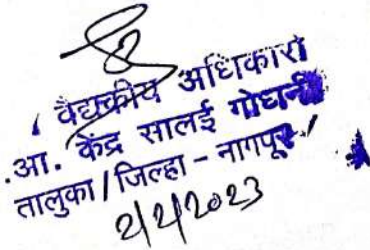 वैद्यकीय अधिकारी
.आ. केंद्र सालई गोधनी
तालुका/जिल्हा - नागपूर
2/2/2023